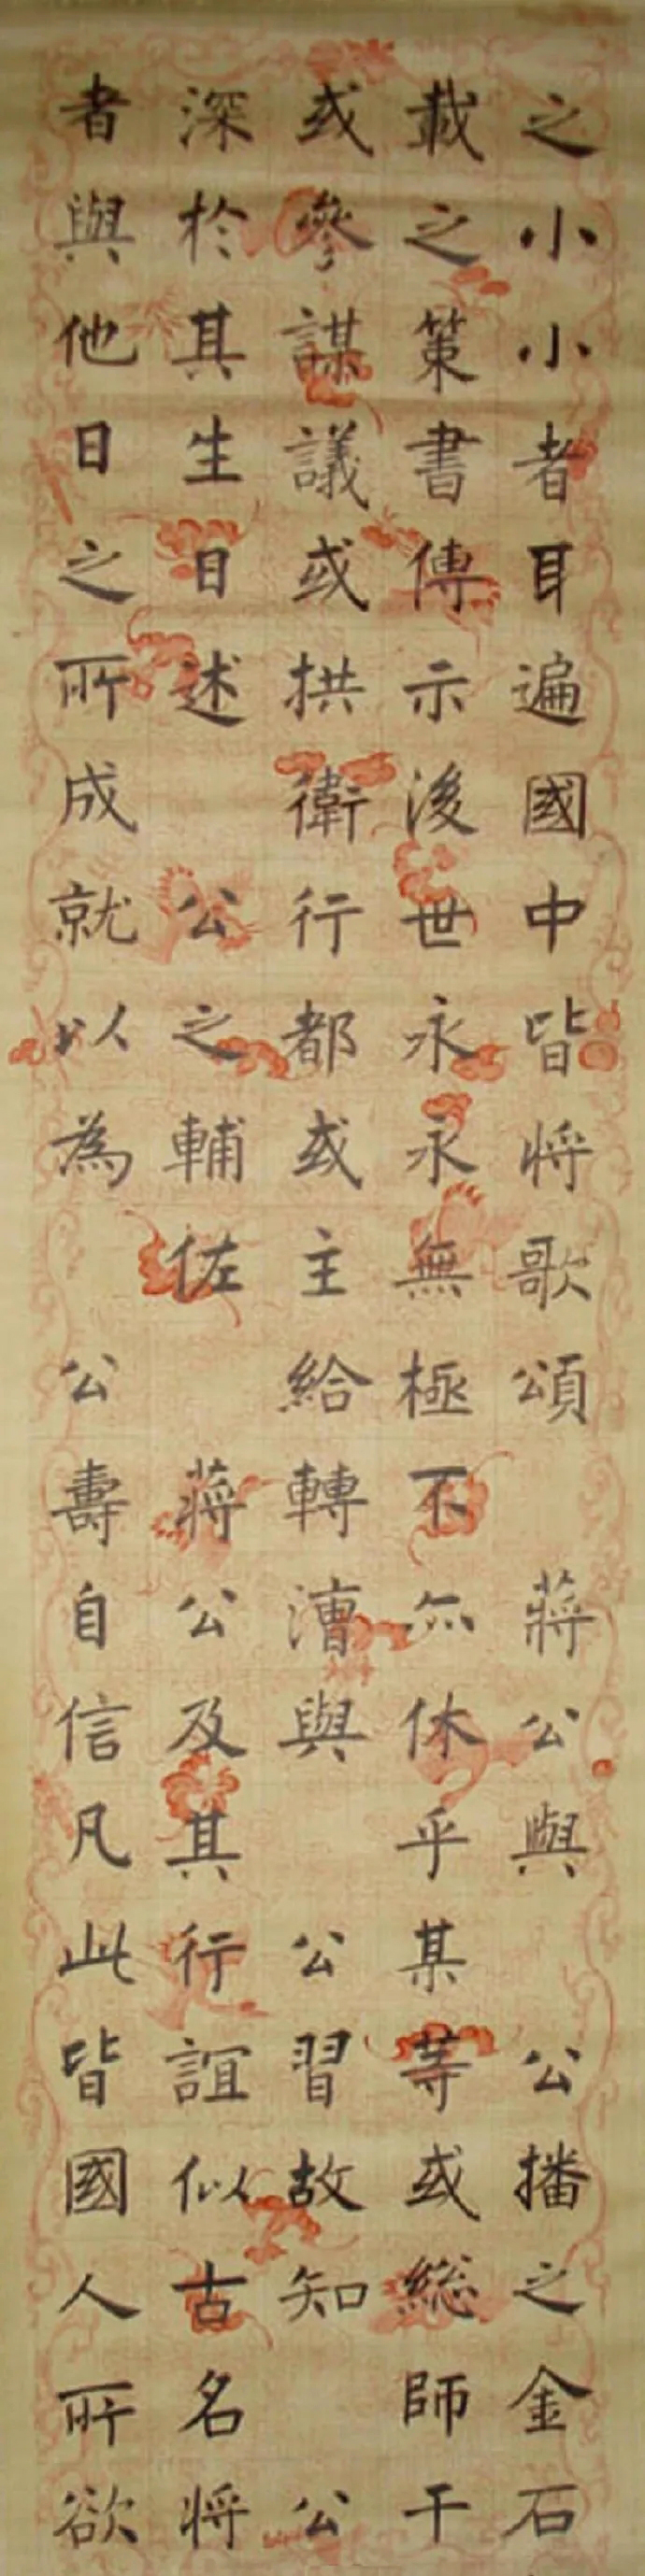 之小小者耳遍國中皆將歌頌　蔣公與　公播之金石
載之策書傳示後世永永無極不亦休乎某等或總師干
或參謀議或拱衛行都或主給轉漕與　公習故知　公
深於其生日述　公之輔佐　蔣公及其行誼似古名將
者與他日之所成就以為　公壽自信凡此皆國人所欲